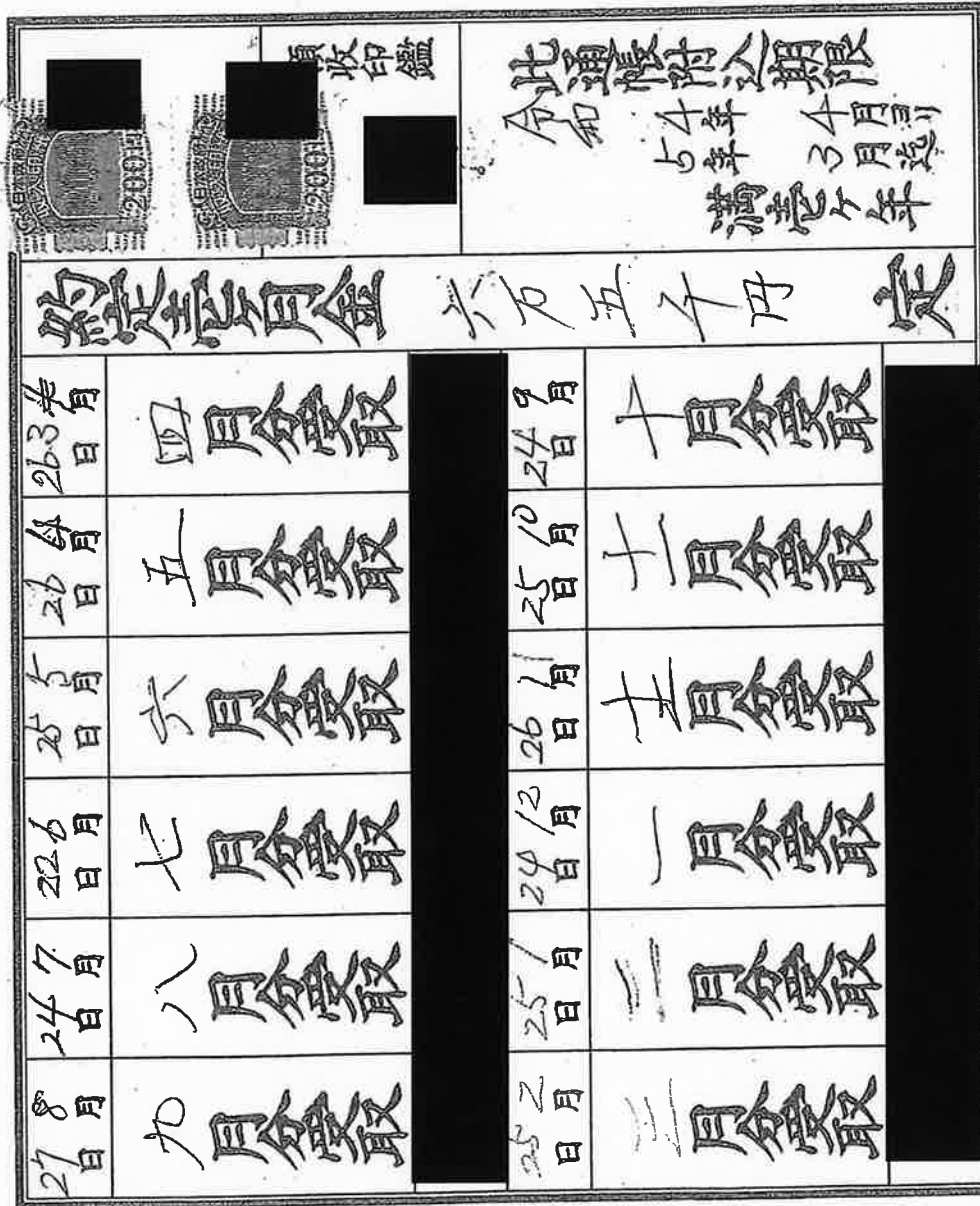 此通帳附込期限
令和 4年 4月ヨリ
5年 3月迄
満壱ヶ年
領収印鑑
約定壱ヶ月金 六万五千円 定
3月26日 四月分受取
4月26日 五月分受取
5月25日 六月分受取
6月22日 七月分受取
7月24日 八月分受取
8月27日 九月分受取
9月24日 十月分受取
10月25日 十一月分受取
11月26日 十二月分受取
12月24日 一月分受取
1月25日 二月分受取
2月25日 三月分受取